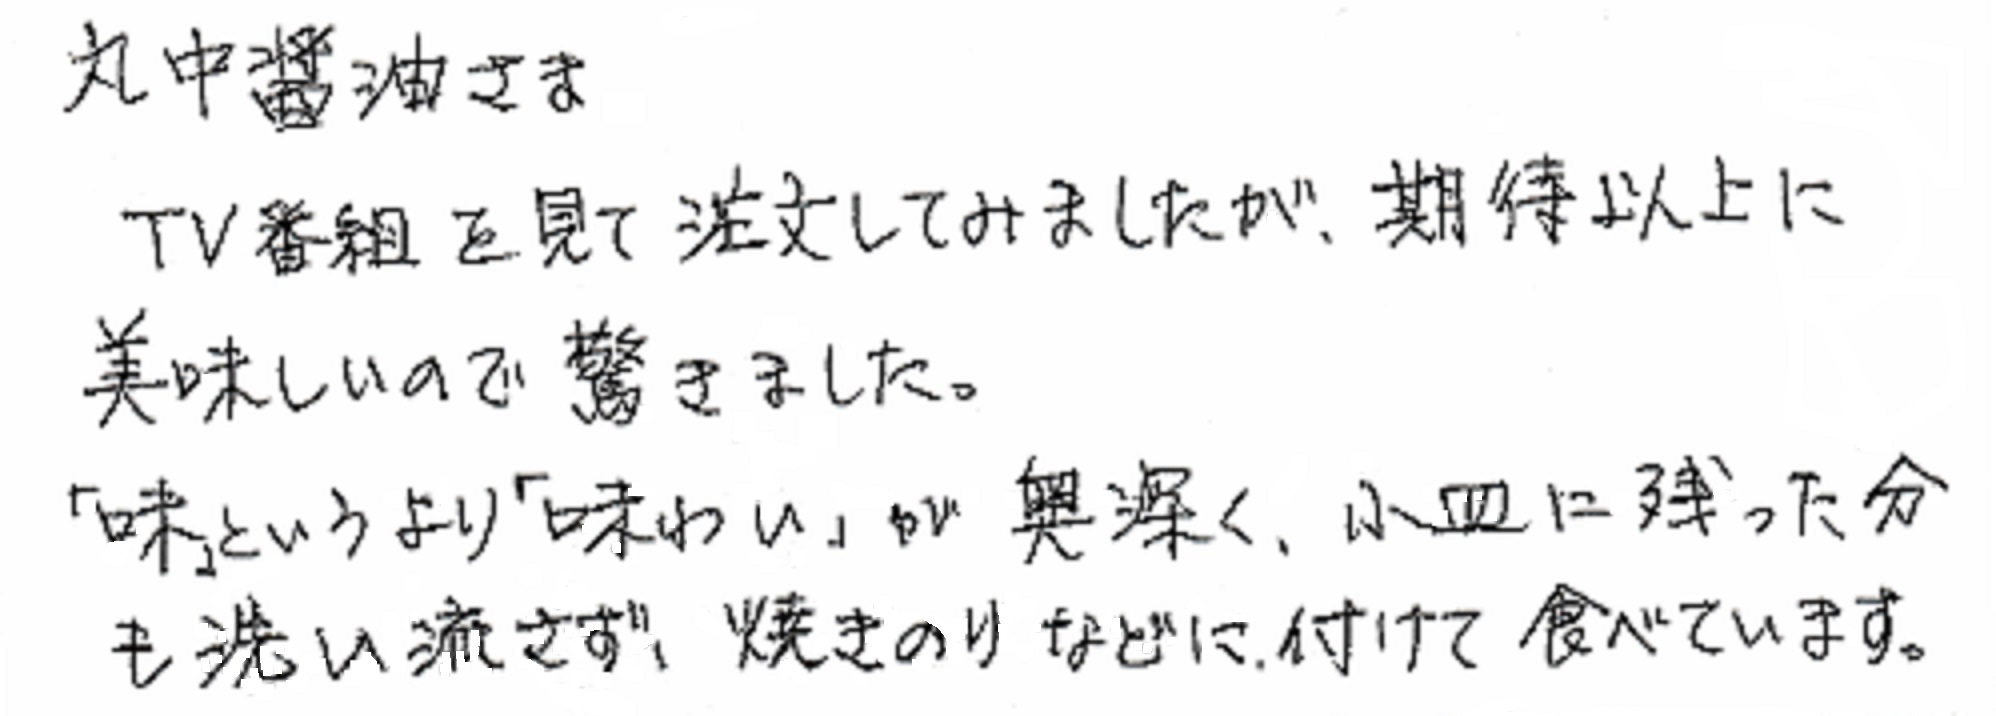 丸中醤油さま
TV番組を見て注文してみましたが、期待以上に
美味しいので驚きました。
「味」というより「味わい」が奥深く、小皿に残った分
も洗い流さず、焼きのりなどに付けて食べています。